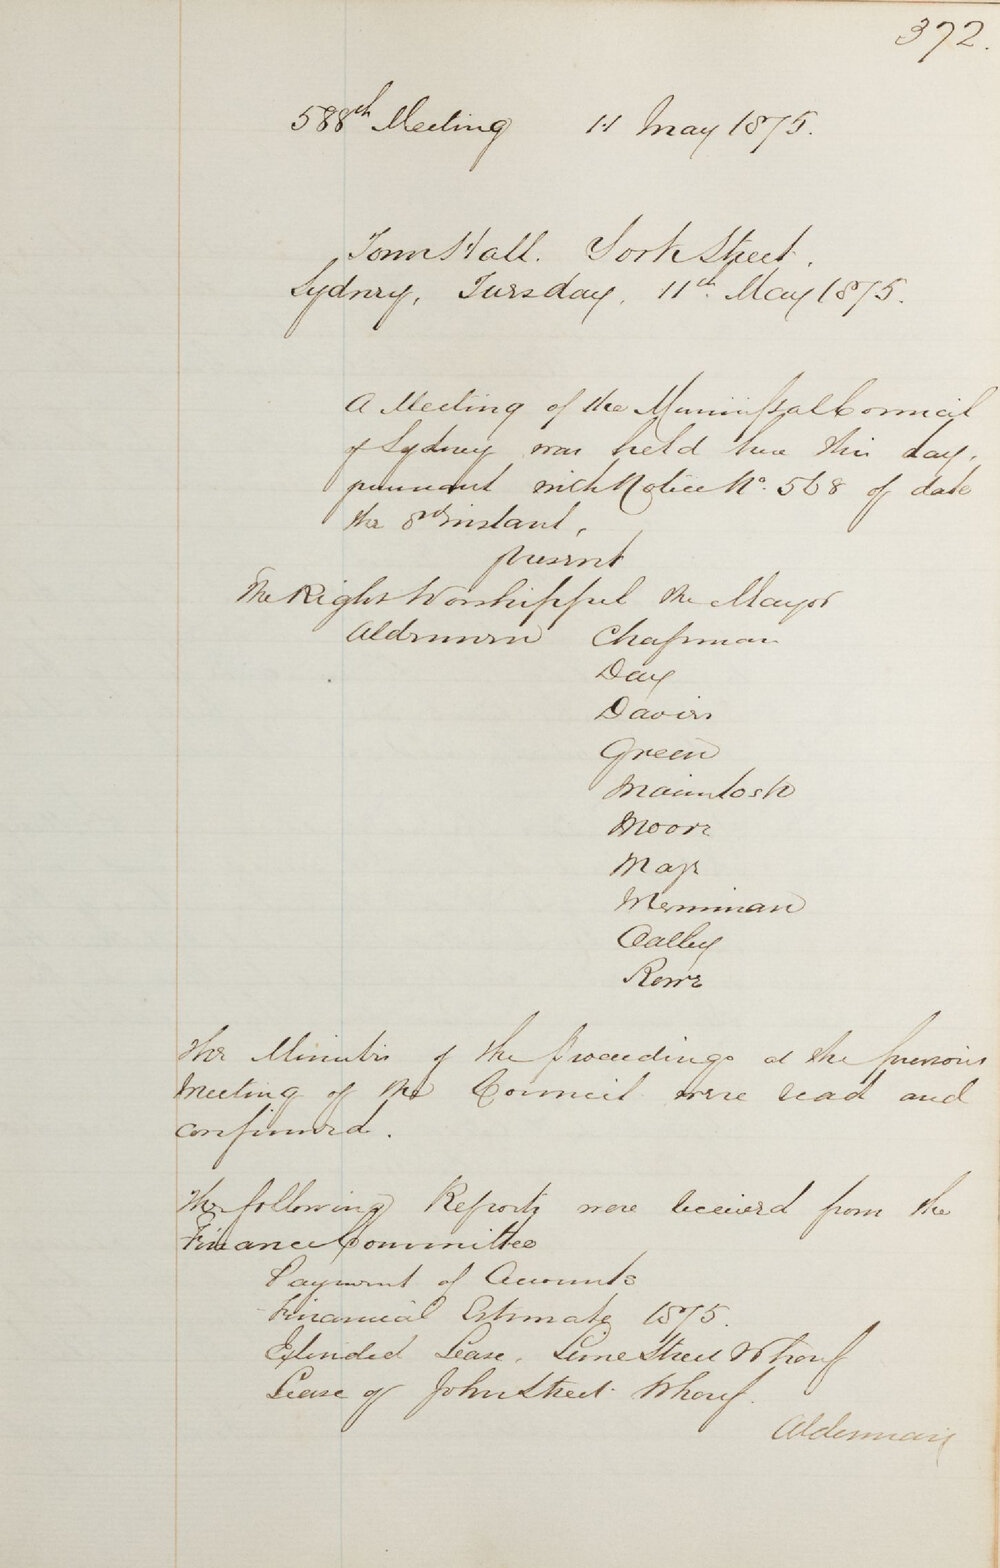 372.
588th Meeting 11 May 1875.
Town Hall. York Street.
Sydney, Tuesday, 11th May 1875.
A Meeting of the Municipal Council
of Sydney was held here this day,
pursuant with Notice No. 568 of date
the 8th instant,
present
The Right Worshipful the Mayor
Aldermen Chapman
Day
Davies
Green
Macintosh
Moore
Merriman
Oatley
Rowe
The Minutes of the Proceedings at the previous
Meeting of the Council were read and
confirmed.
The following Reports were received from the
Finance Committee
Payment of Accounts
Financial Estimate 1875.
Extended Lease, Lime Street Wharf
Lease of John Street Wharf.
Alderman